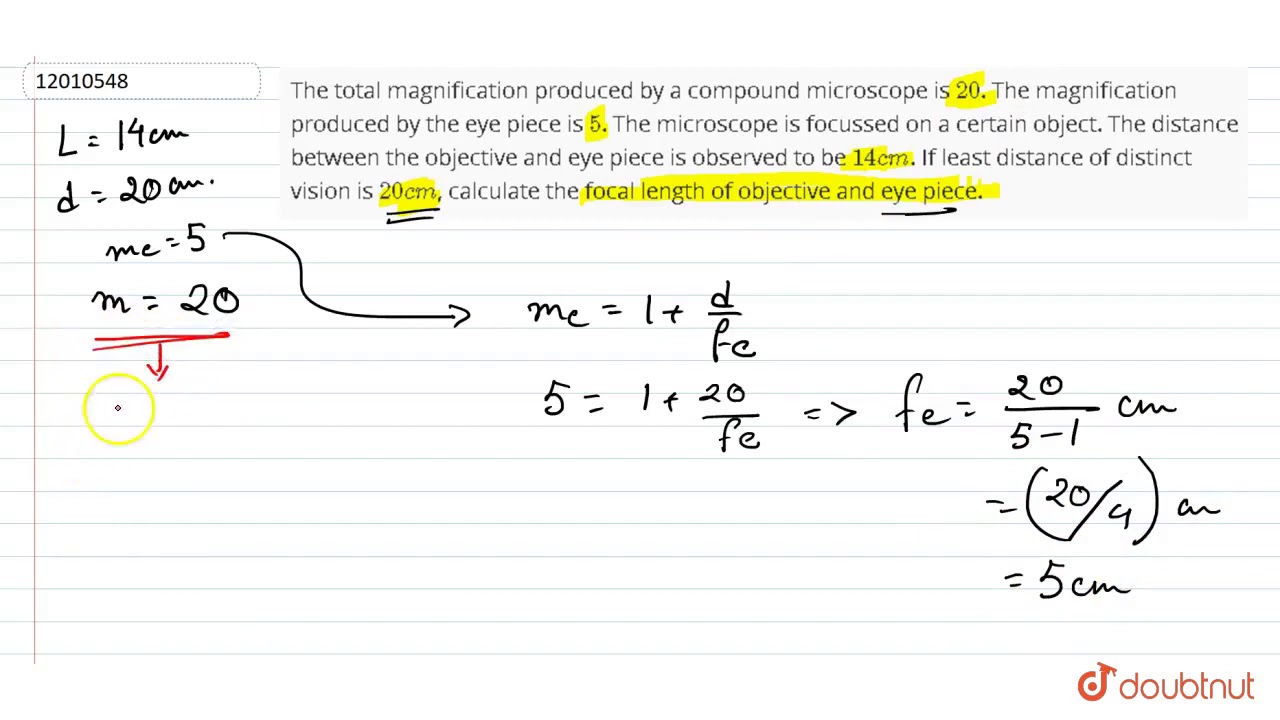 12010548
The total magnification produced by a compound microscope is 20. The magnification
produced by the eye piece is 5. The microscope is focussed on a certain object. The distance
between the objective and eye piece is observed to be 14cm. If least distance of distinct
vision is 20cm, calculate the focal length of objective and eye piece.
L = 14cm
d = 20cm.
me = 5
m = 20
me = 1 + d/fe
5 = 1 + 20/fe => fe = 20/(5-1) cm
= (20/4) cm
= 5cm
doubtnut